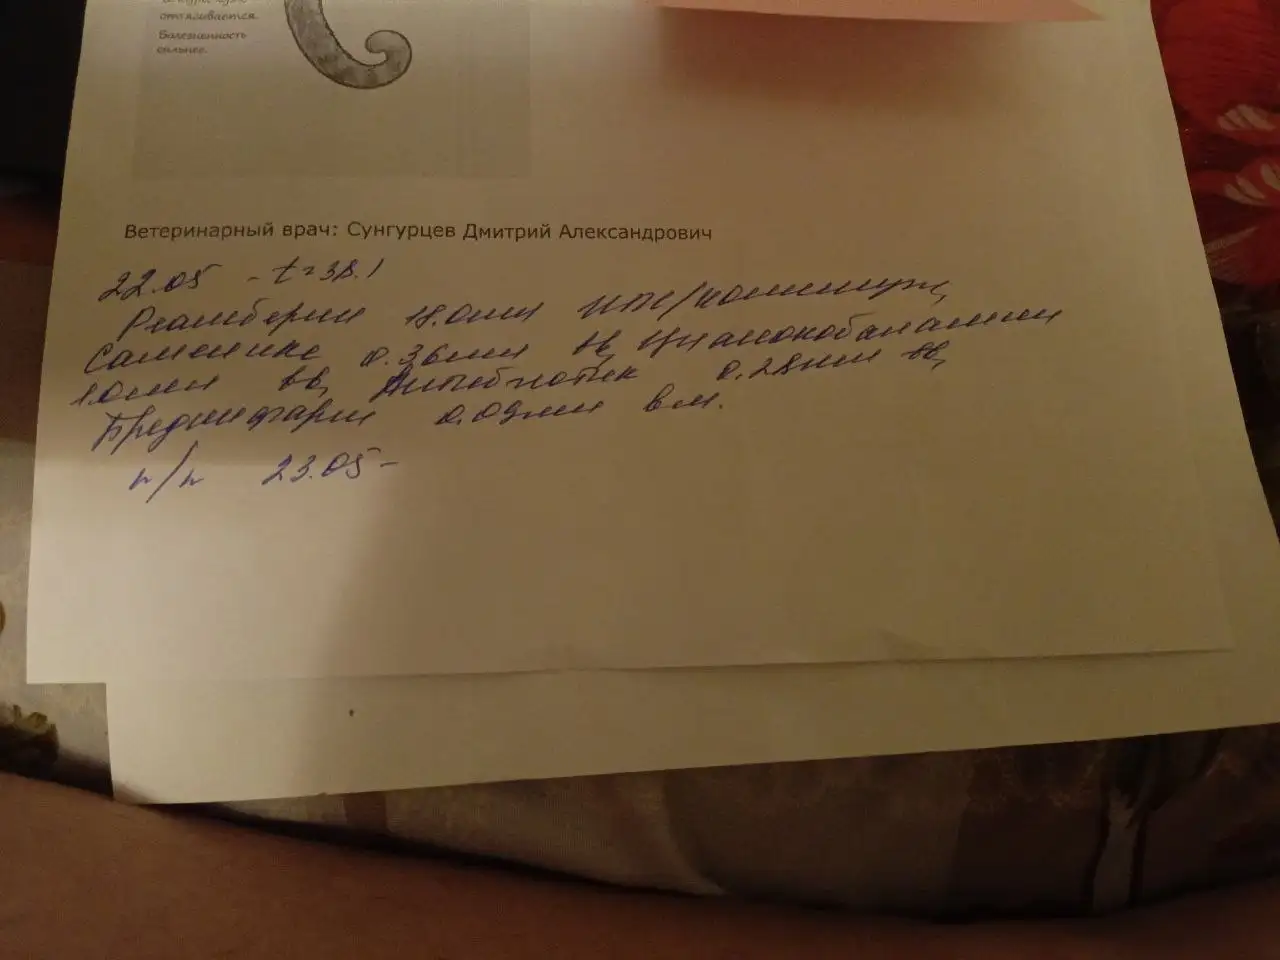 оттягивается.
Болезненность
сильнее.
Ветеринарный врач: Сунгурцев Дмитрий Александрович
22.05 - t=38.1
Реамберин 18.0мл ИПС/капельн,
Самеликс 0.36мл вв, Цианокобаламин
1.0мл вв, Антибиотик 0.28мл вв,
Преднифарм 0.09мл вм.
п/п 23.05-